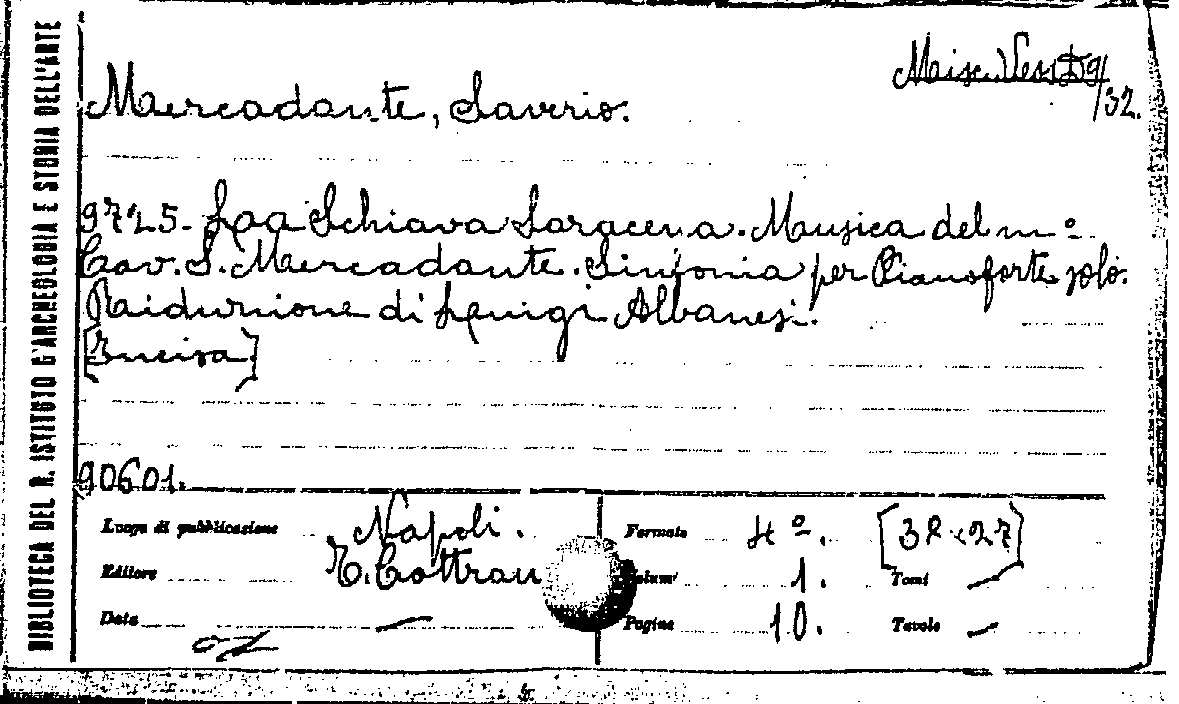 BIBLIOTECA DEL R. ISTITUTO D'ARCHEOLOGIA E STORIA DELL'ARTE
Misc. Vess D9/32.
Mercadante, Saverio.
9725. La Schiava Saracena. Musica del mº
Cav. S. Mercadante. Sinfonia per Pianoforte solo.
Riduzione di Luigi Albanesi.
[Incisa]
90601.
Luogo di pubblicazione Napoli. Formato 4º. [38×27]
Editore T. Cottrau Volumi 1. Tomi —
Data — Pagine 10. Tavole —